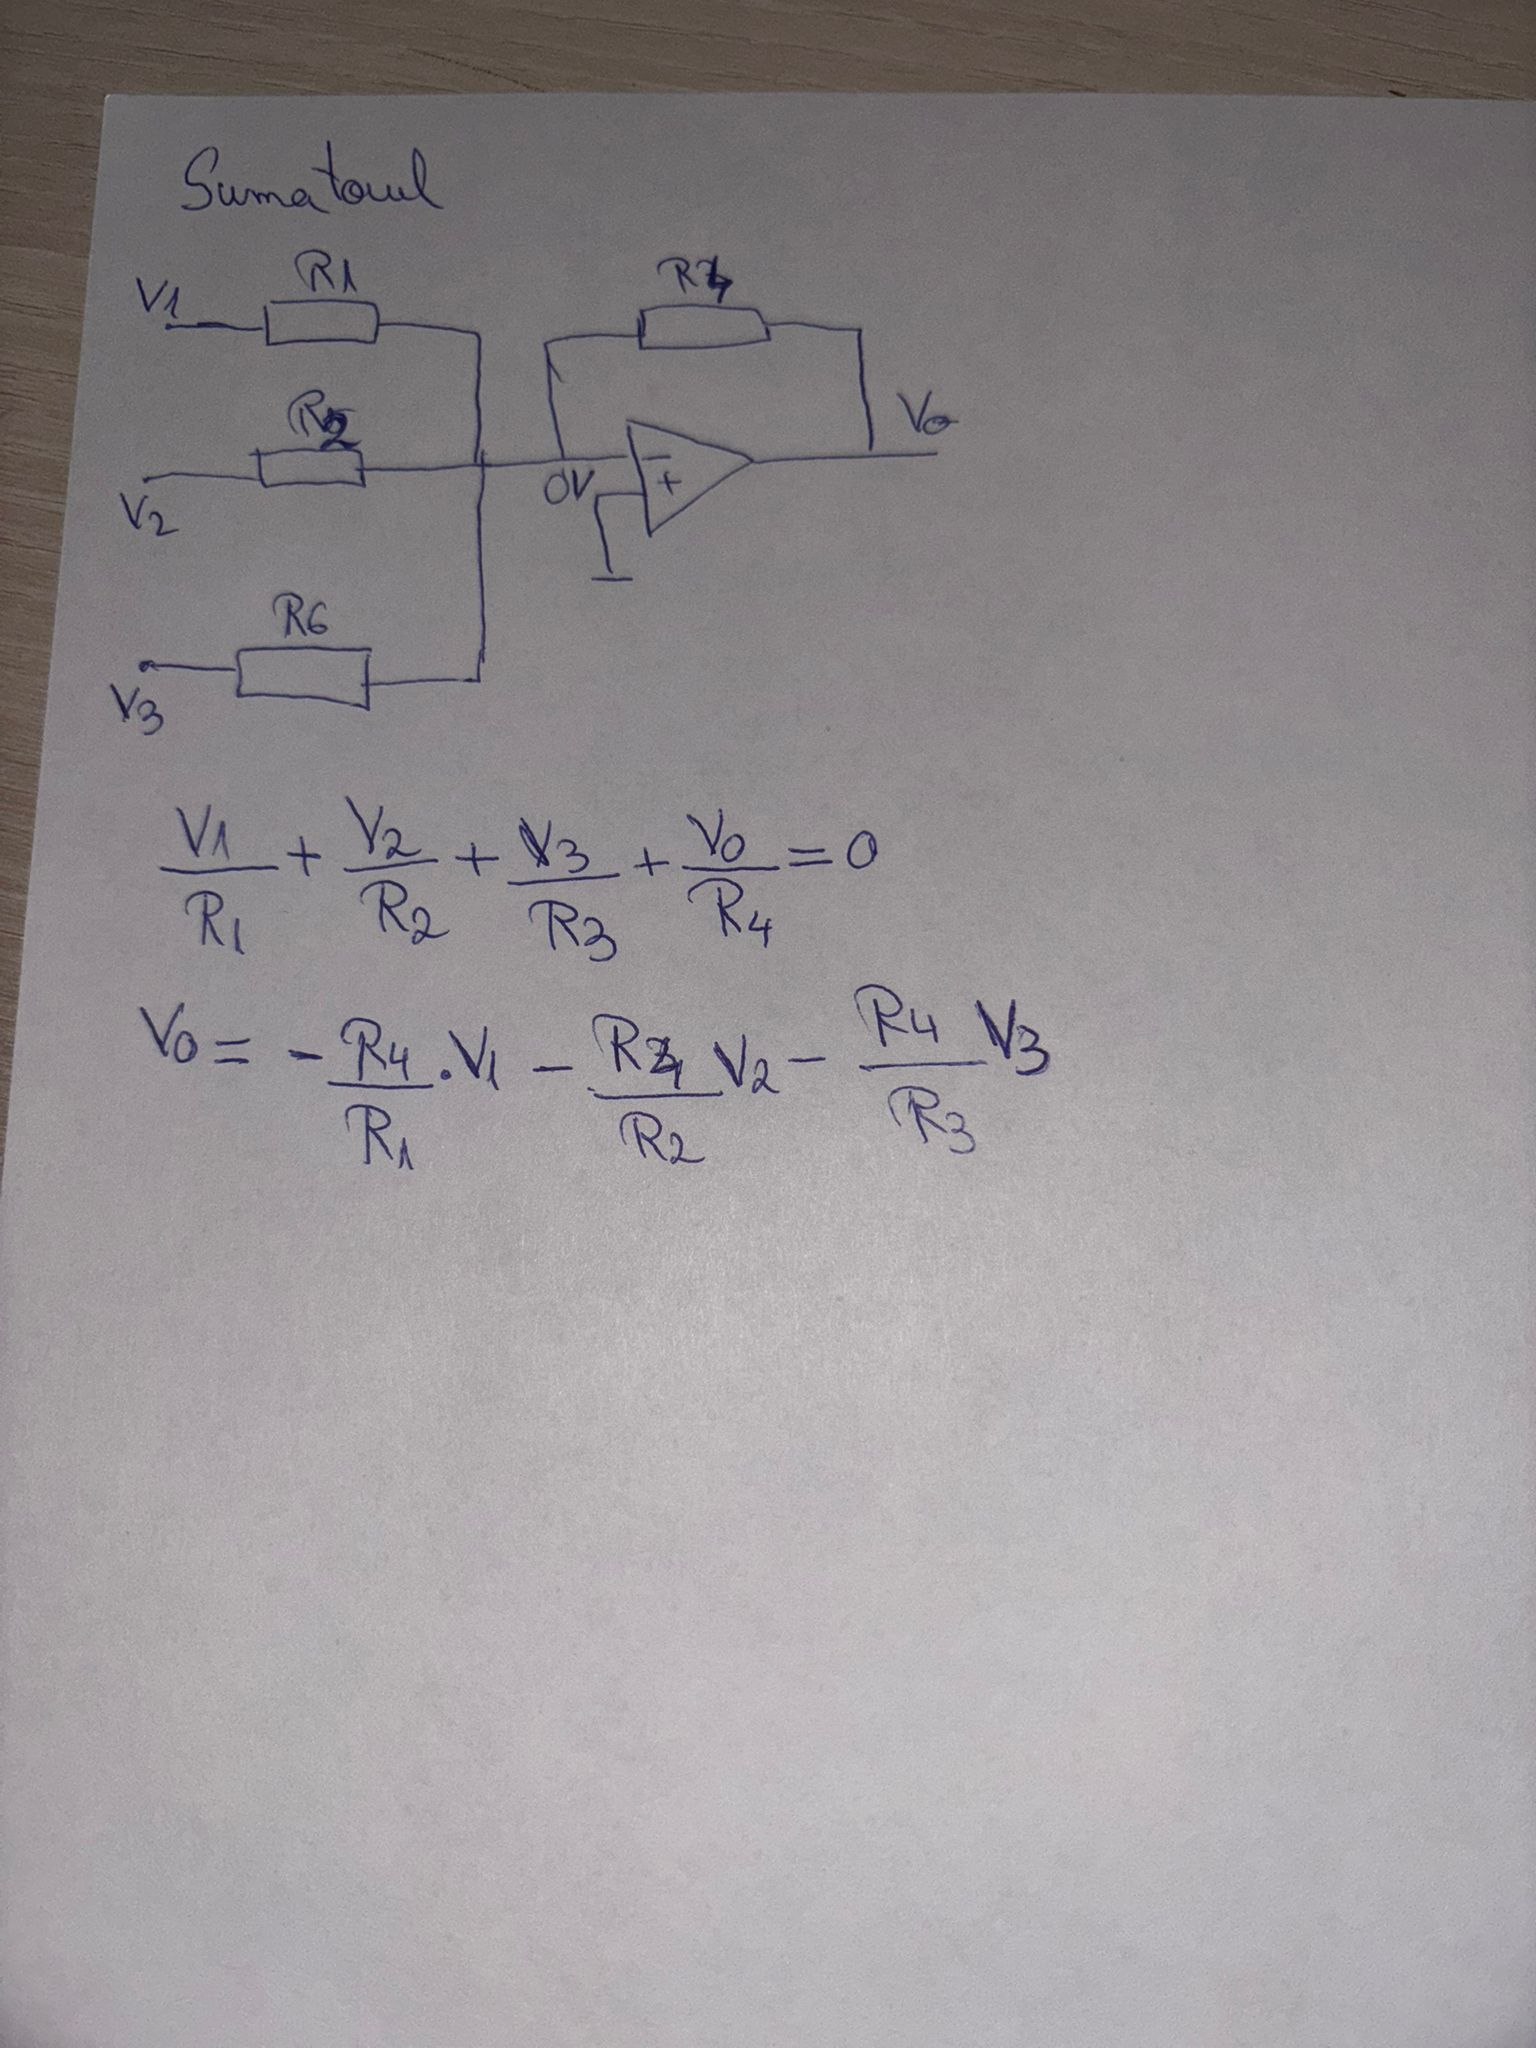 Sumatorul
V1 R1 R4
R2 V0
V2 0V - +
R6
V3
V1/R1 + V2/R2 + V3/R3 + V0/R4 = 0
V0 = - R4/R1 . V1 - R4/R2 V2 - R4/R3 V3